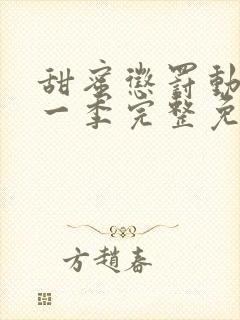 甜蜜懲罰動
一季完整免
方趙春